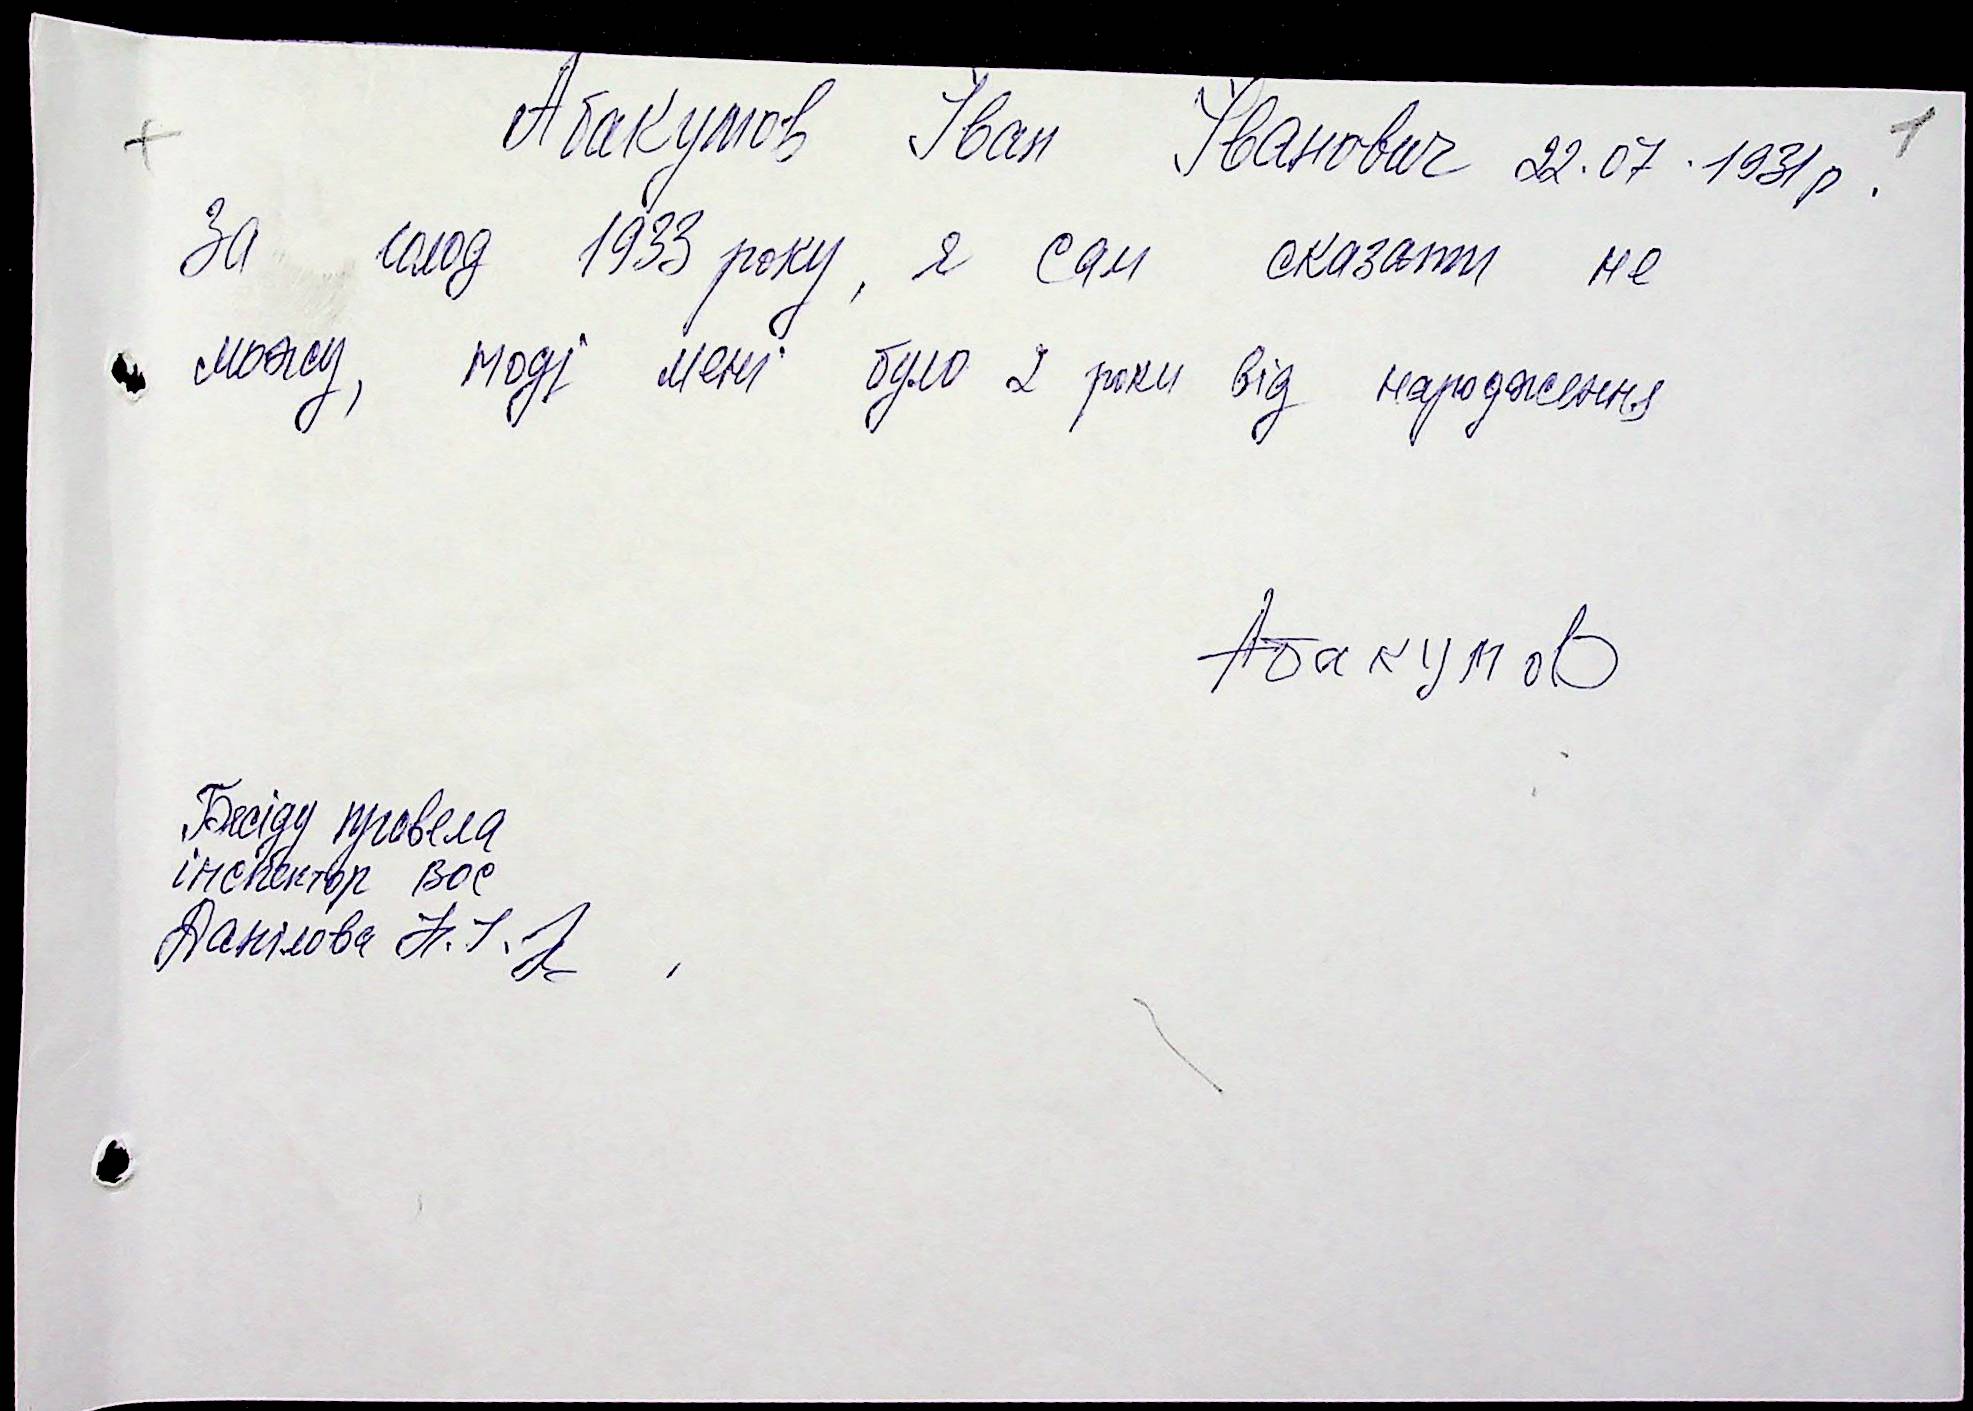 1
Абакумов Іван Іванович 22.07.1931р.
За голод 1933 року, я сам сказати не
можу, тоді мені було 2 роки від народження
Абакумов
Бесіду провела
інспектор ВОС
Данілова Н.І.